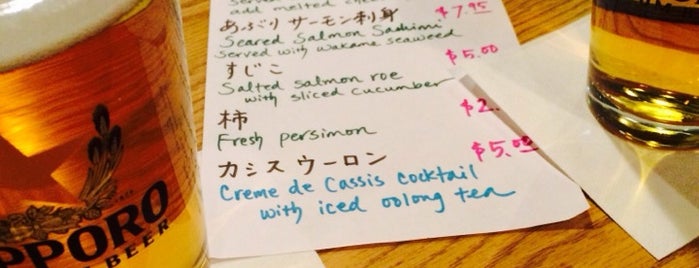 add melted
あぶり サーモン刺身
$7.95
Seared Salmon Sashimi
served with wakame seaweed
すじこ
$5.00
Salted salmon roe
with sliced cucumber
柿
$2.
Fresh persimon
カシス ウーロン
$5.00
Creme de Cassis cocktail
with iced oolong tea
PPORO
BEER